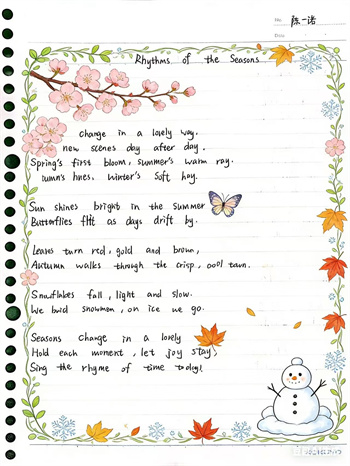 No:
陈一诺
Date:
Rhythms of the Seasons
change in a lovely way.
new scenes day after day.
Spring's first bloom, summer's warm ray.
tumn's hues. Winter's soft hay.
Sun shines bright in the Summer
Butterflies flit as days drift by.
Leaves turn red, gold and brown,
Autumn walks through the crisp, cool town.
Snowflakes fall, light and slow.
We build snowmen, on ice we go.
Seasons change in a lovely
Hold each moment, let joy stay,
Sing the rhyme of time today!